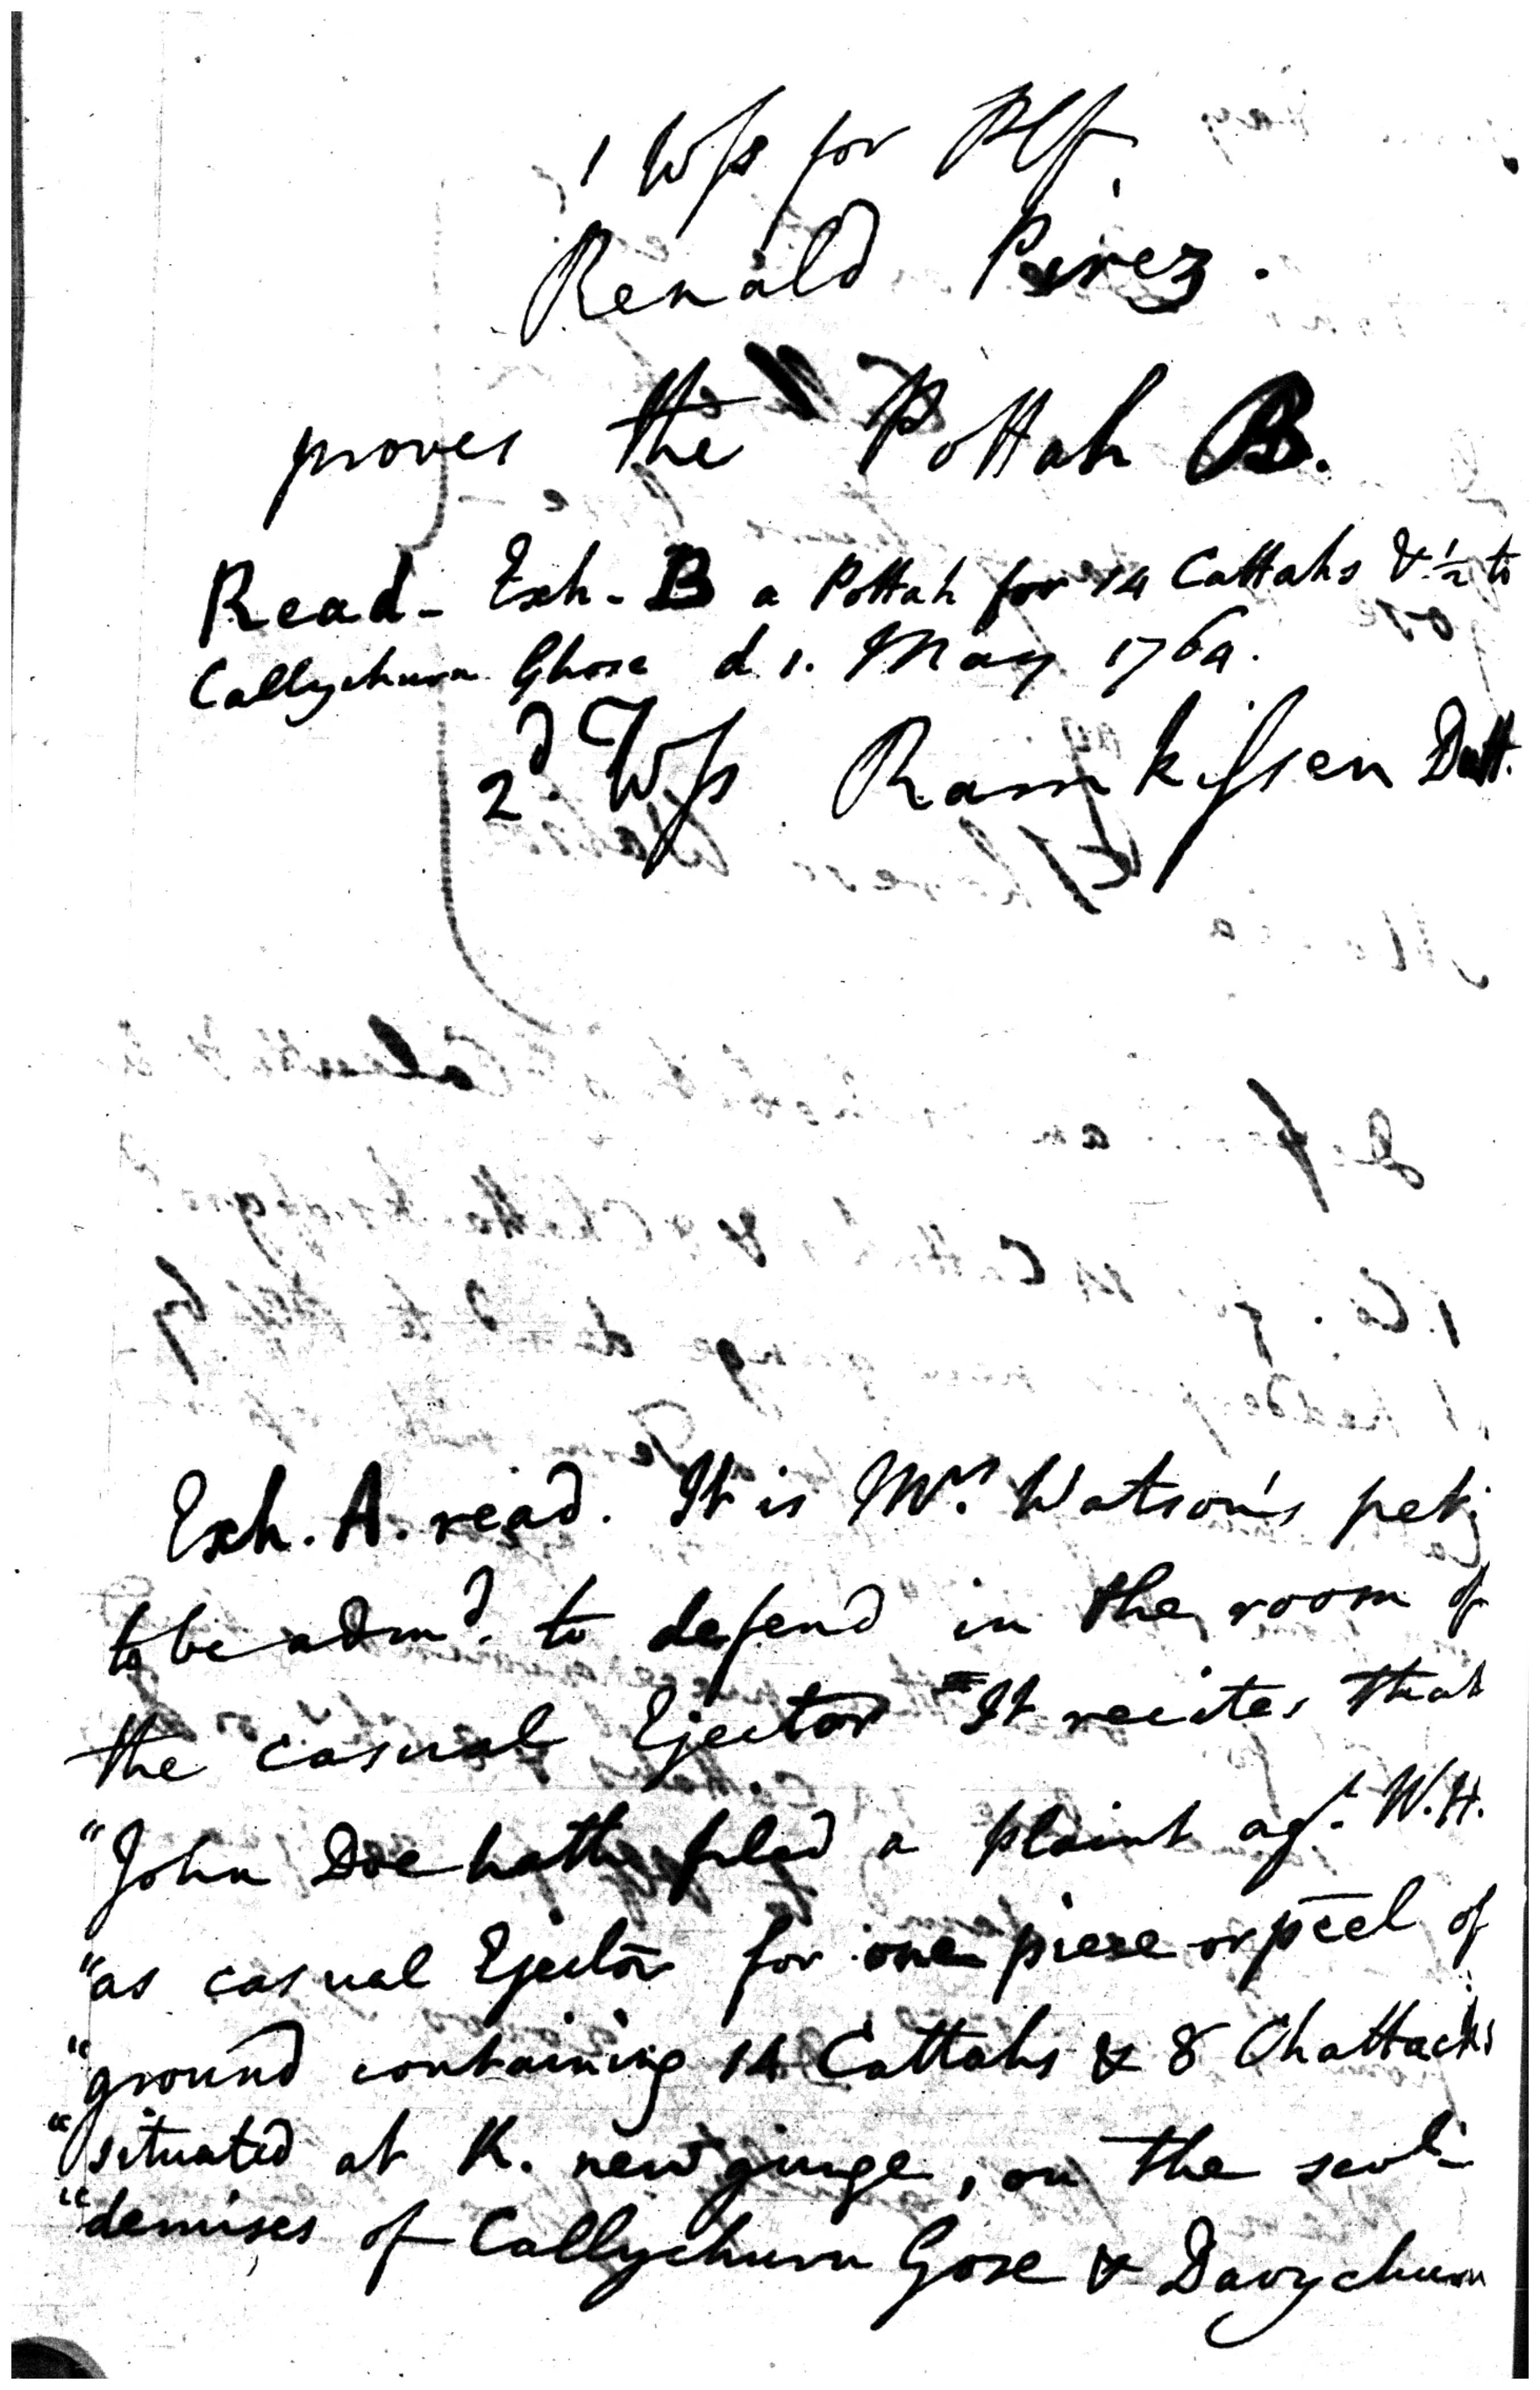 1 Wss for Plf
Renald Pirez.
proves the Pottah B.
Read - Exh - B a Pottah for 14 Cattahs & ½ to
Callychurn Ghose d 1. May 1764.
2d. Wss Ramkissen Dutt.
Exh. A. read. It is Mrs. Watson's petj
to be admd. to defend in the room of
the casual Ejector It recites that
"John Doe hath filed a plaint agt. W.H.
"as casual Ejector for one piece or pcel of
"ground containing 14 Cattahs & 8 Chattacks
"situated at K. newgunge, on the sevl
"demises of Callychurn Gose & Davychurn